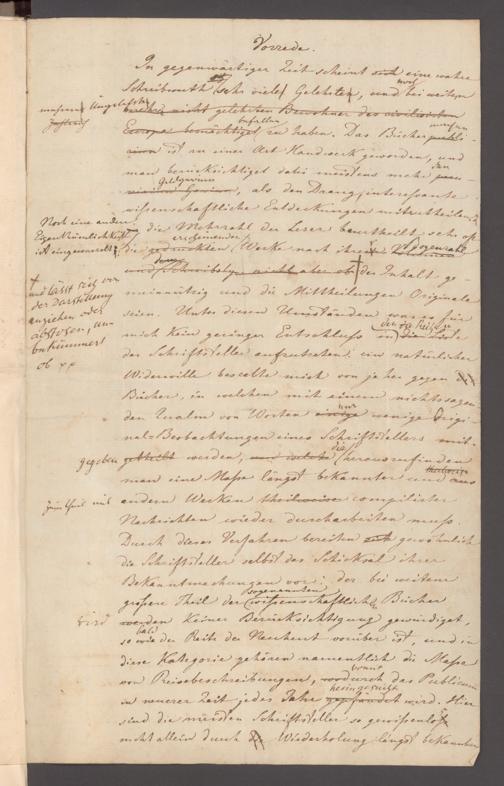 Vorrede.
In gegenwärtiger Zeit scheint eine wahre
Schreibwuth sehr viele Gelehrte, und bei weitem
mehrere Ungelehrte
befallen zu haben. Das Bücher
ist zu einer Art Handwerk geworden, und
man berücksichtiget dabei meistens mehr den
Geldgewinn, als den Drang, interessante
wissenschaftliche Entdeckungen mitzutheilen;
Noch eine andere
Eigenthümlichkeit
ist eingewurzelt
die Mehrzahl der Leser beurtheilt sehr oft
die erscheinenden Werke nach ihrer
und lässt sich von
der Darstellung
anziehen oder
abstossen, un-
bekümmert
ob
der Inhalt ge-
meinnützig und die Mittheilungen Originale
seien. Unter diesen Umständen war es für
mich kein geringer Entschluss in die Reihe
der Schriftsteller aufzutreten; ein natürlicher
Widerwille beseelte mich von jeher gegen
Bücher, in welchen mit einem nichtssagen-
den Qualm von Worten nur wenige Origi-
nal-Beobachtungen eines Schriftstellers mit-
gegeben werden, die herauszufinden
man eine Masse längst bekannter und
zum theil aus
andern Werken theilweise compilirter
Nachrichten wieder durcharbeiten muss.
Durch dieses Verfahren bereiten gewöhnlich
die Schriftsteller selbst das Schicksal ihrer
Bekanntmachungen vor; der bei weitem
grössere Theil der sogenannten wissenschaftlichen Bücher
wird keiner Berücksichtigung gewürdiget,
so bald der Reitz der Neuheit vorüber ist, und in
diese Kategorie gehören namentlich die Masse
von Reisebeschreibungen, womit das Publicum
in neuerer Zeit jedes Jahr heimgesucht wird. Hier
sind die meisten Schriftsteller so gewissenlos
nicht allein durch die Wiederholung längst bekannten